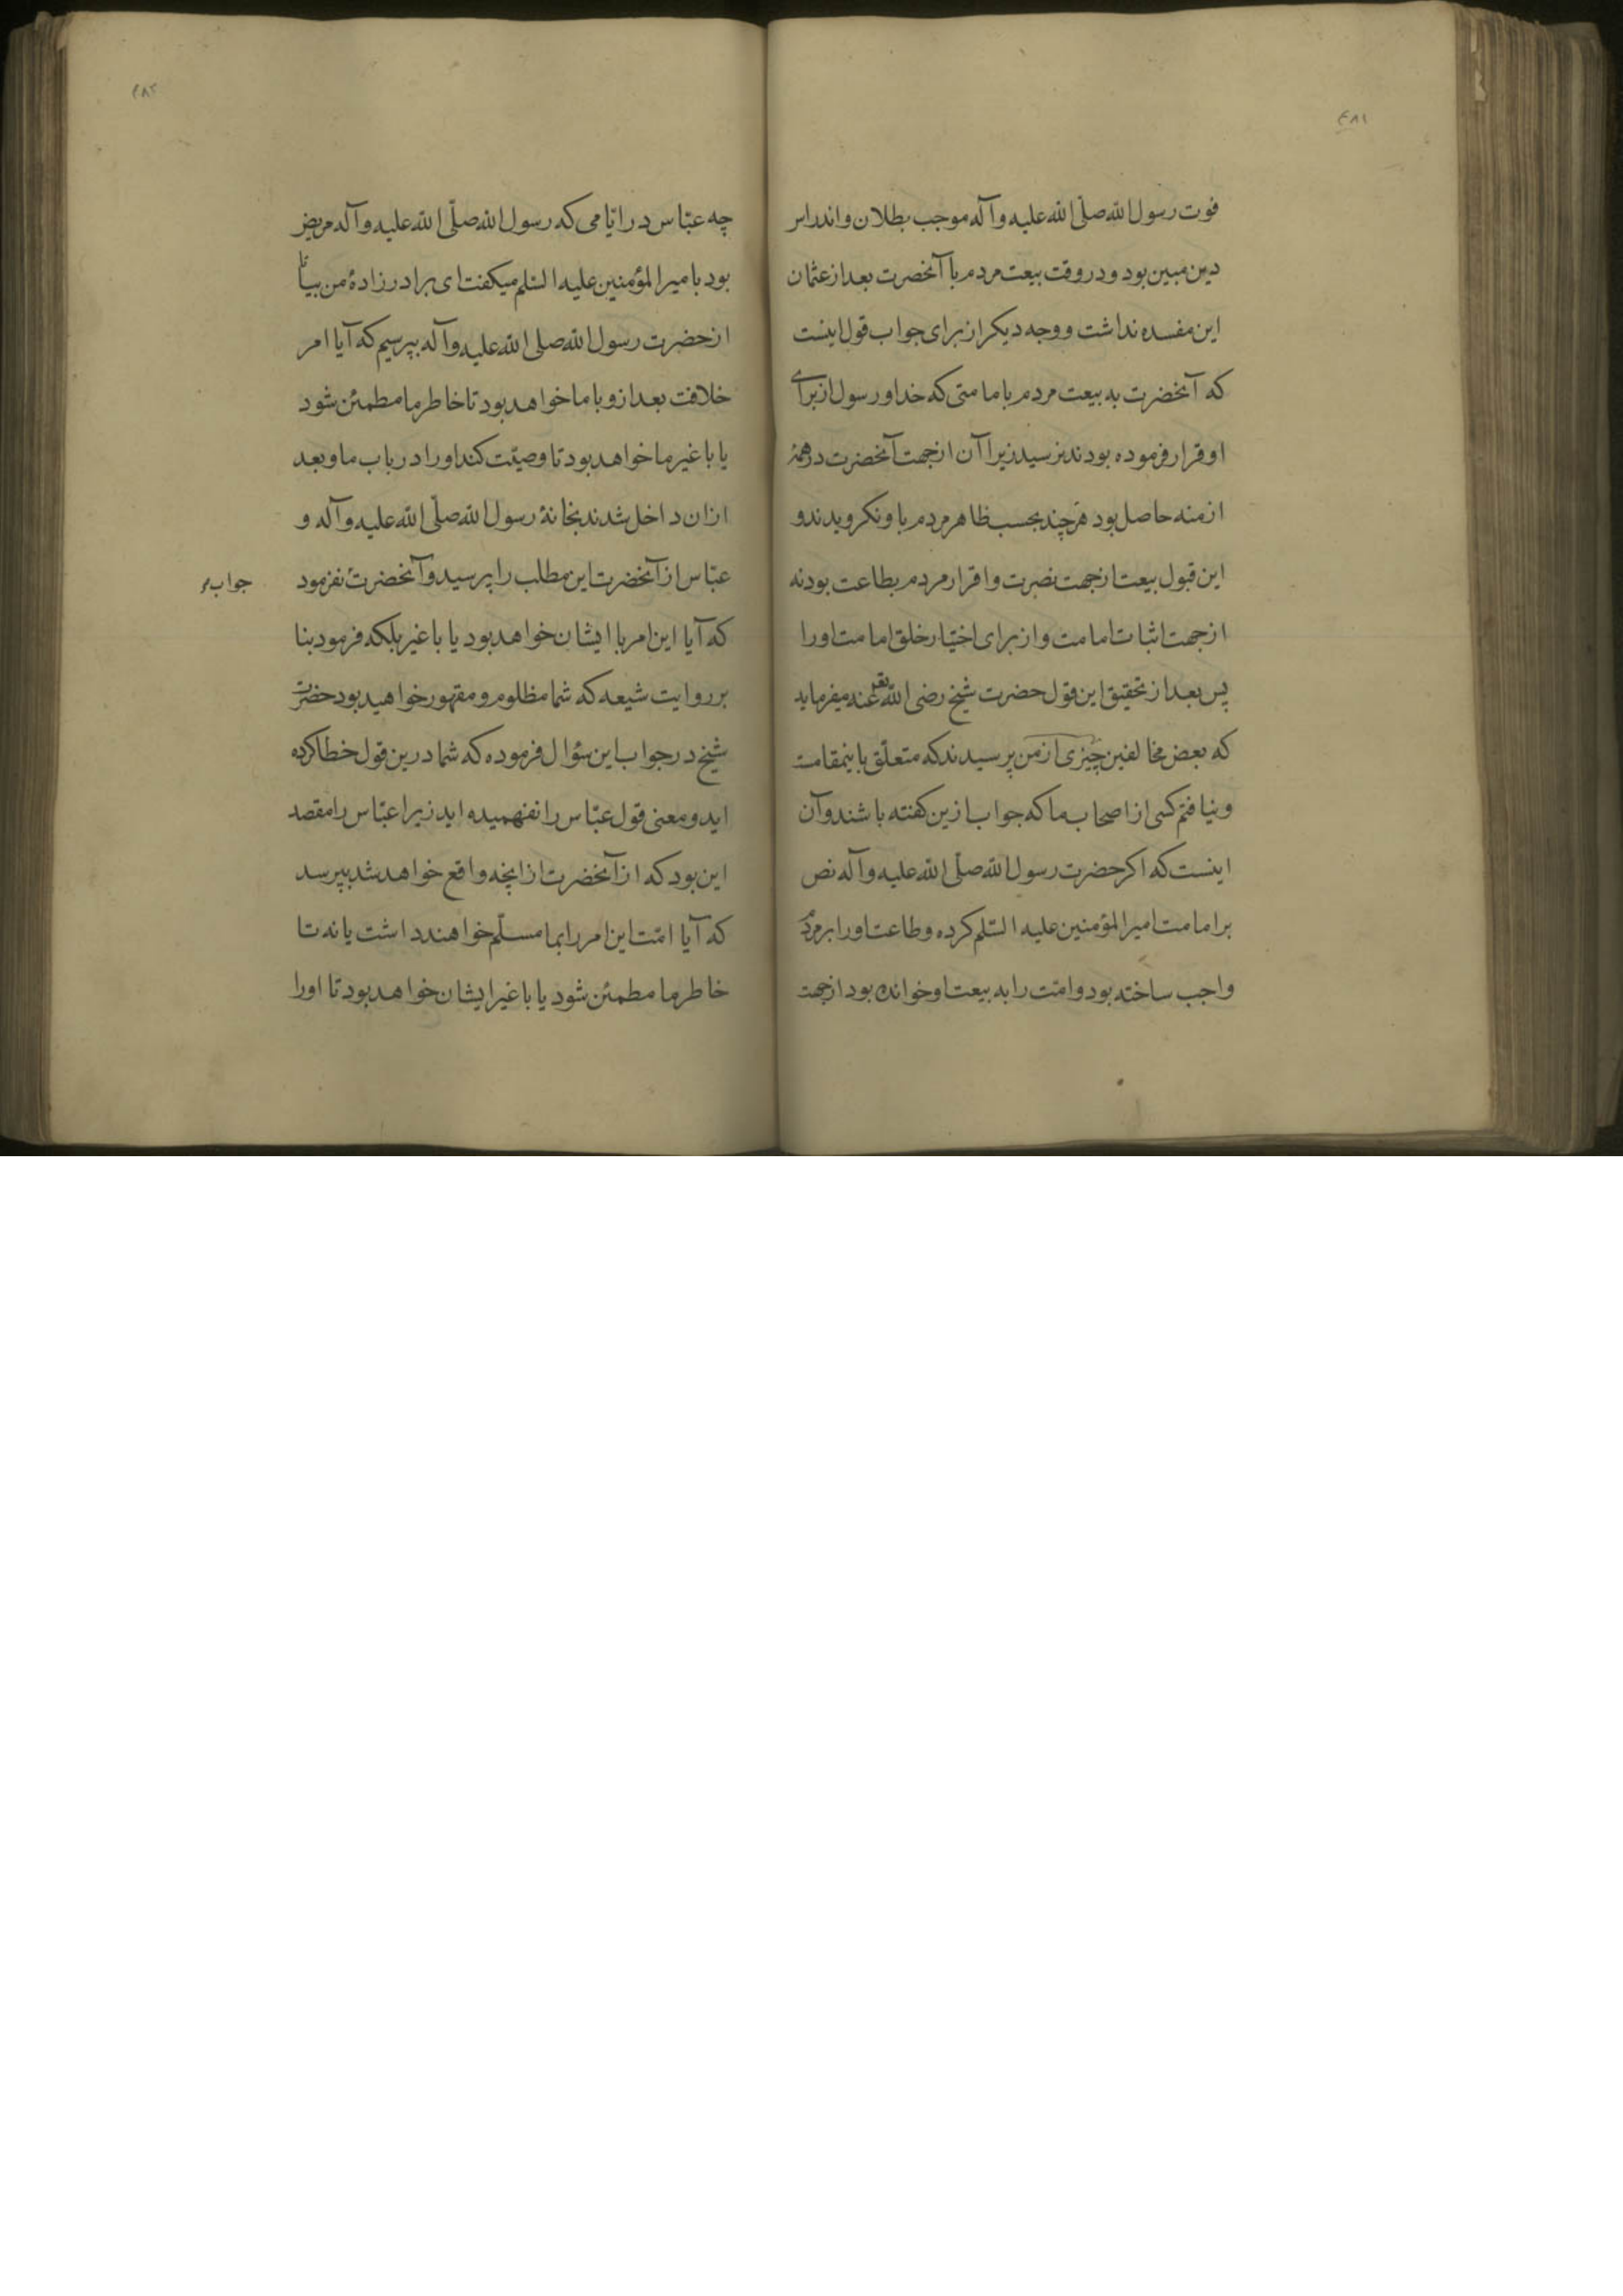 ۴۸۱
فوت رسول الله صلّی الله علیه وآله موجب بطلان واندراس
دین مبین بود ودر وقت بیعت مردم با آنحضرت بعد از عثمان
این مفسده نداشت ووجه دیکر از برای جواب قول اینست
که آنحضرت به بیعت مردم بامامتی که خدا ورسول از برای
او قرار فرموده بودند نرسید زیرا آن از جهت آنحضرت در همهٔ
ازمنه حاصل بود هرچند بحسب ظاهر مردم باو نکرویدند و
این قبول بیعت از جهت نصرت واقرار مردم بطاعت بود نه
از جهت اثبات امامت واز برای اختیار خلق امامت اورا
پس بعد از تحقیق این قول حضرت شیخ رضی الله تعا عنه میفرماید
که بعض مخالفین چیزی از من پرسیدند که متعلّق باینمقامست
ونیافتم کسی از اصحاب ما که جواب ازین کفته باشند وآن
اینست که اکر حضرت رسول الله صلّی الله علیه وآله نص
بر امامت امیر المؤمنین علیه السّلم کرده وطاعت اورا بر مردم
واجب ساخته بود وامّت را به بیعت او خوانده بود از جهت
۴۸۲
چه عبّاس در ایّامی که رسول الله صلّی الله علیه وآله مریض
بود بامیر المؤمنین علیه السّلم میکفت ای برادر زادهٔ من بیا تا
از حضرت رسول الله صلی الله علیه وآله بپرسیم که آیا امر
خلافت بعد ازو با ما خواهد بود تا خاطر ما مطمئن شود
یا با غیر ما خواهد بود تا وصیّت کند اورا در باب ما وبعد
ازان داخل شدند بخانهٔ رسول الله صلّی الله علیه وآله و
عبّاس از آنحضرت این مطلب را پرسید وآنحضرت نفرمود
جواب
که آیا این امر با ایشان خواهد بود یا با غیر بلکه فرمود بنا
بر روایت شیعه که شما مظلوم ومقهور خواهید بود حضرت
شیخ در جواب این سؤال فرموده که شما درین قول خطا کرده
اید ومعنی قول عبّاس را نفهمیده اید زیرا عبّاس را مقصد
این بود که از آنحضرت از آنچه واقع خواهد شد بپرسد
که آیا امّت این امر را بما مسلّم خواهند داشت یا نه تا
خاطر ما مطمئن شود یا با غیر ایشان خواهد بود تا اورا